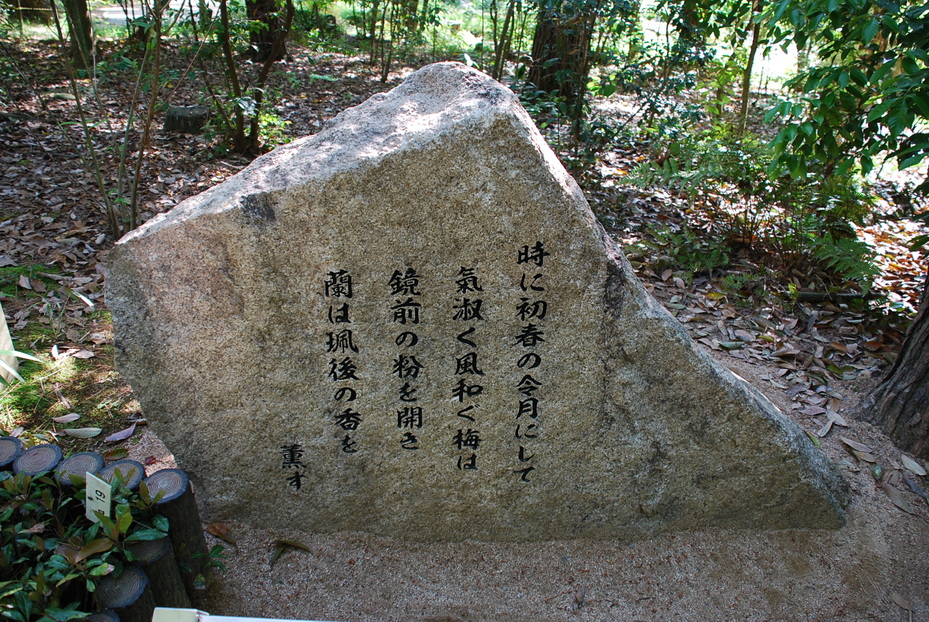 時に初春の令月にして
氣淑く風和ぐ梅は
鏡前の粉を開き
蘭は珮後の香を
薫す